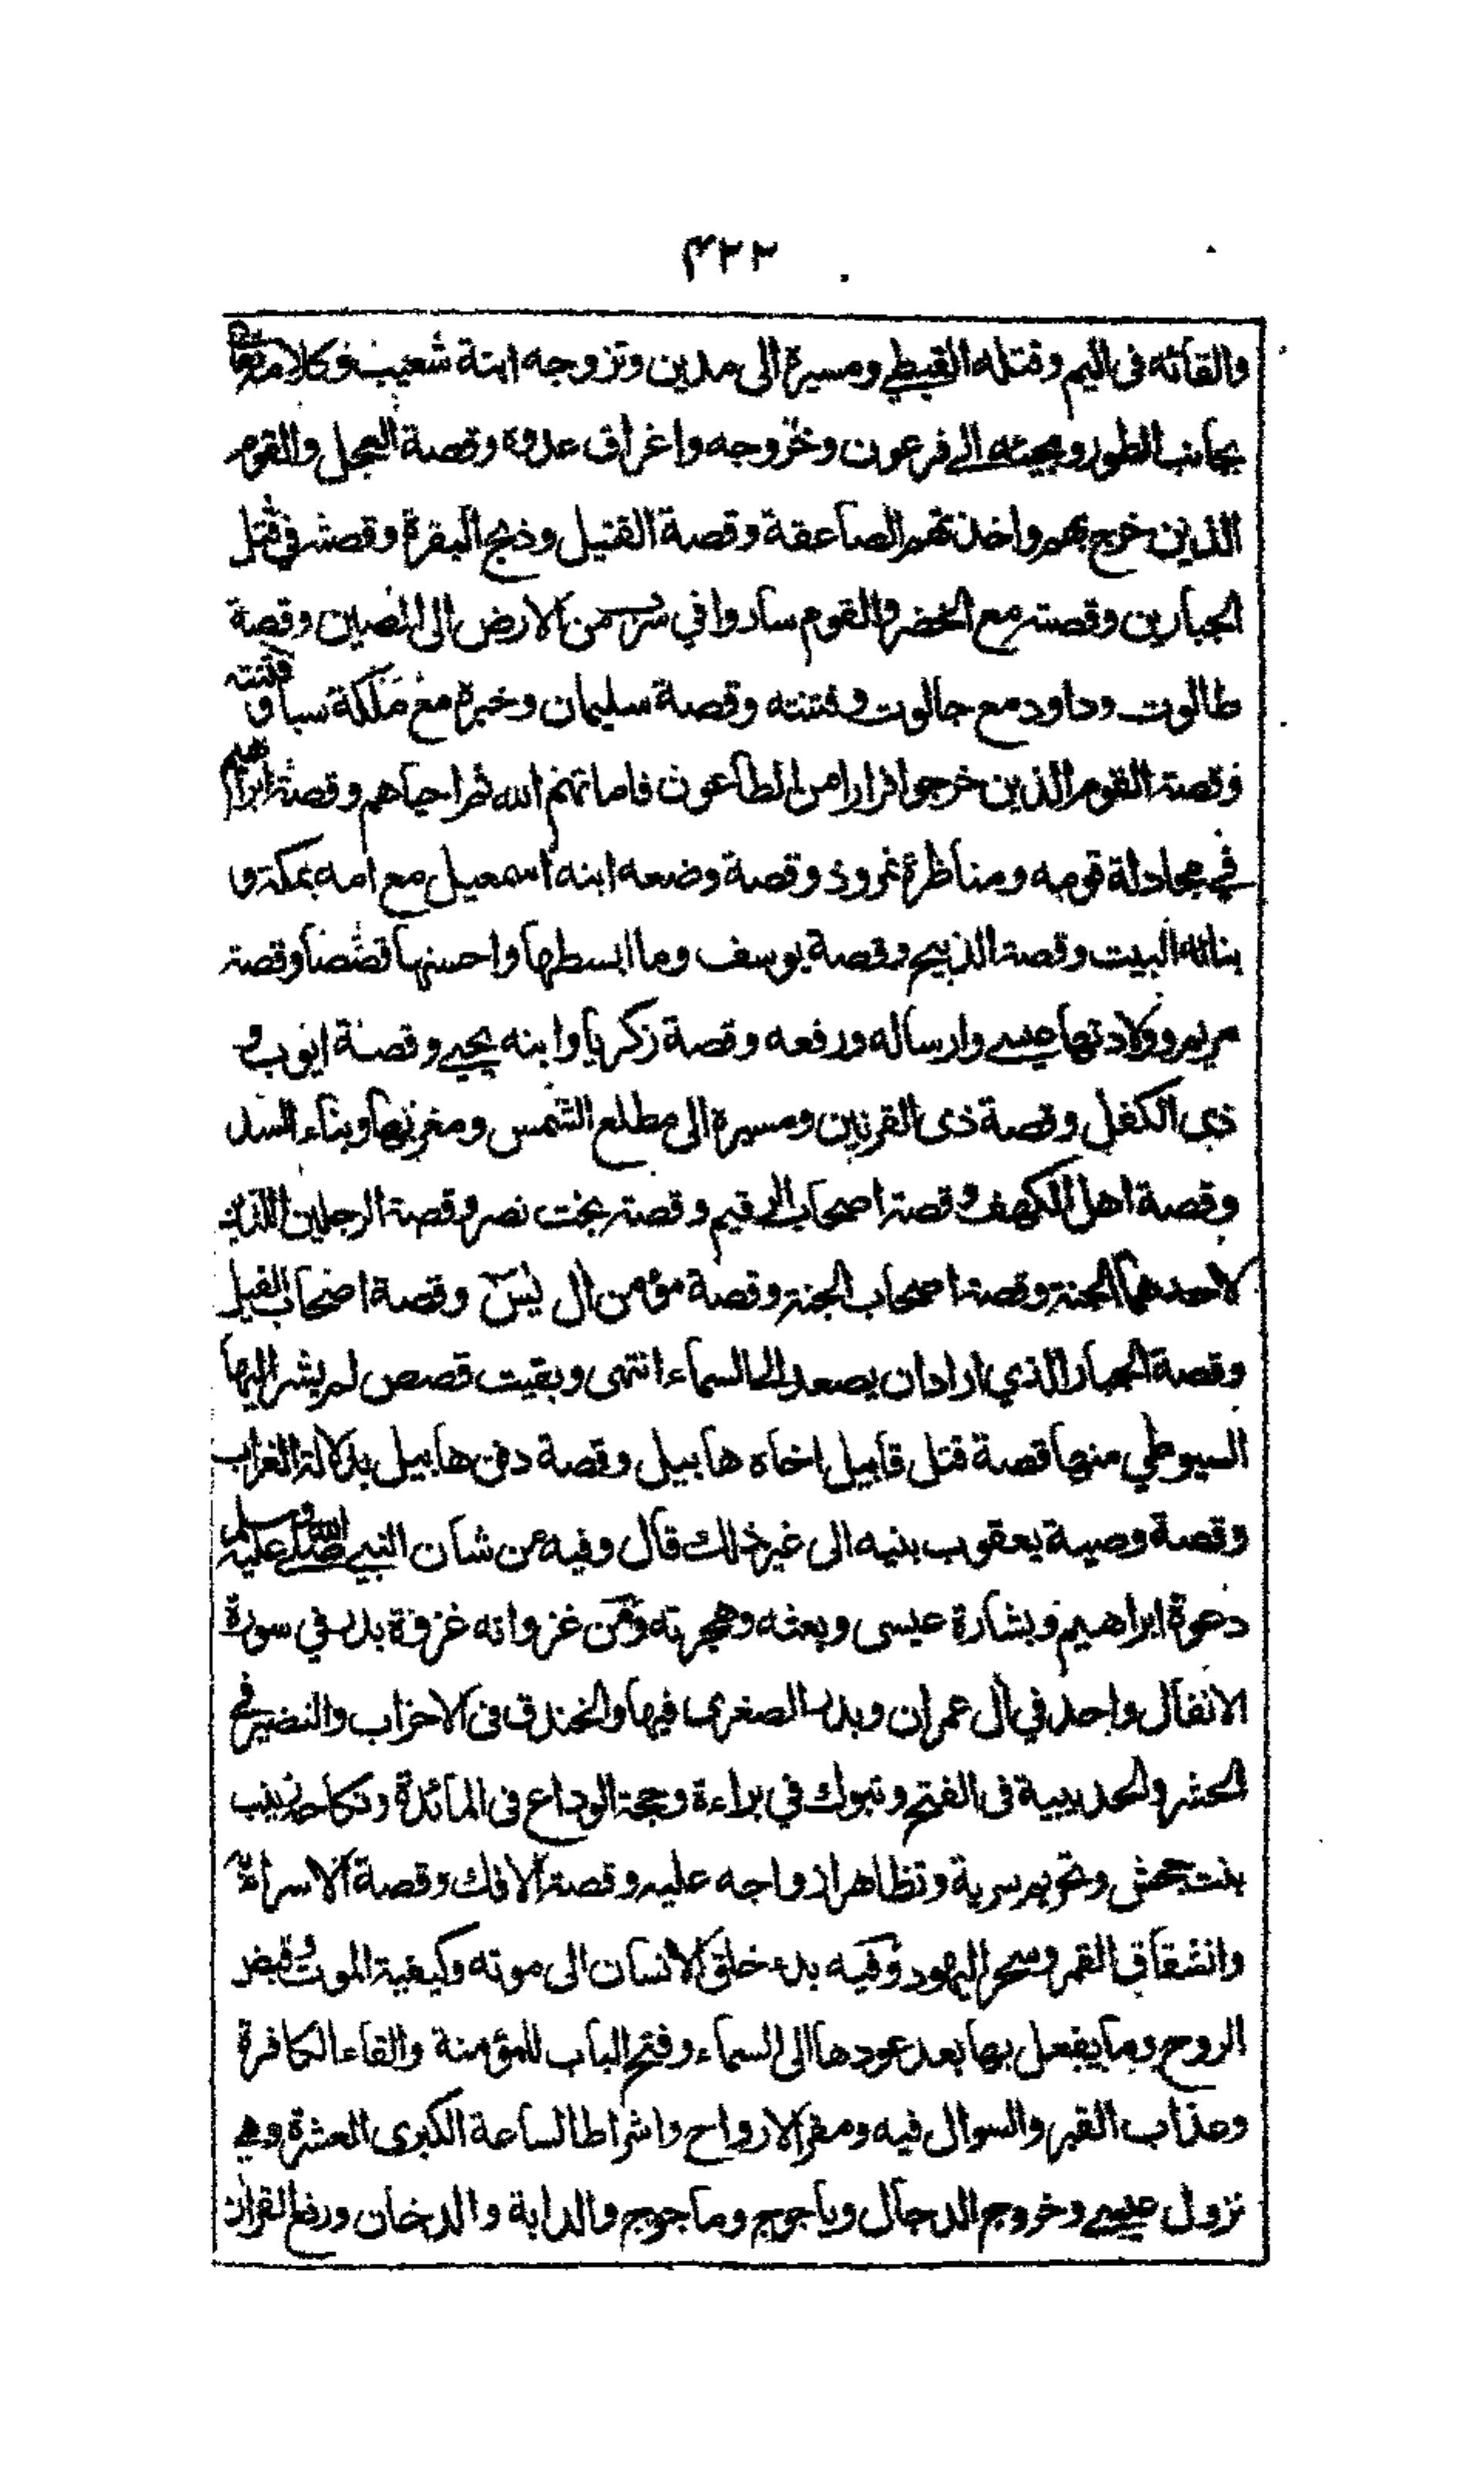 ٤٢٢
والقائه فى اليم وقتله القبطي ومسيره الى مدين وتزوجه ابنة شعيب وكلامه تعالى
بجانب الطور ومجيئه الى فرعون وخروجه واغراق عدوه وقصة العجل والقوم
الذين خرج بهم واخذتهم الصاعقة وقصة القتيل وذبح البقرة وقصته في قتل
الجبارين وقصته مع الخضر والقوم ساروا في سرب من الارض الى الصين وقصة
طالوت وداود مع جالوت وفتنته وقصة سليمان وخبره مع ملكة سبا وفتنته
وقصة القوم الذين خرجوا فرارا من الطاعون فاماتهم الله ثم احياهم وقصة ابراهيم
في مجادلة قومه ومناظرة نمروذ وقصة وضعه ابنه اسمعيل مع امه بمكة و
بنائه البيت وقصة الذبيح وقصة يوسف وما ابسطها واحسنها قصصا وقصة
مريم وولادتها عيسى وارساله ورفعه وقصة زكريا وابنه يحيى وقصة ايوب و
ذى الكفل وقصة ذى القرنين ومسيره الى مطلع الشمس ومغربها وبناء السد
وقصة اهل الكهف وقصة اصحاب الرقيم وقصة بخت نصر وقصة الرجلين اللذين
لاحدهما الجنة وقصة اصحاب الجنة وقصة مؤمن ال يس وقصة اصحاب الفيل
وقصة الجبار الذي اراد ان يصعد الى السماء انتهى وبقيت قصص لم يشر اليها
السيوطي منها قصة قتل قابيل اخاه هابيل وقصة دفن هابيل بدلالة الغراب
وقصة وصية يعقوب بنيه الى غير ذلك قال وفيه من شان النبي صلى الله عليه وسلم
دعوة ابراهيم وبشارة عيسى وبعثه وهجرته ومن غزواته غزوة بدر في سورة
الانفال واحد في ال عمران وبدر الصغرى فيها والخندق فى الاحزاب والنضير في
الحشر والحديبية فى الفتح وتبوك في براءة وحجة الوداع فى المائدة ونكاحه زينب
بنت جحش وتحريم سرية وتظاهر ازواجه عليه وقصة الافك وقصة الاسراء
وانشقاق القمر وسحر اليهود وفيه بدء خلق الانسان الى موته وكيفية الموت وقبض
الروح وما يفعل بها بعد عودها الى السماء وفتح الباب للمؤمنة والقاء الكافرة
وعذاب القبر والسوال فيه ومقر الارواح واشراط الساعة الكبرى العشرة وهي
نزول عيسى وخروج الدجال وياجوج وماجوج والدابة والدخان ورفع القران